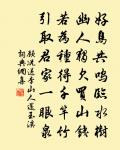 好鳥共鳴臨水樹
幽人獨欠買山錢
若為種得千竿竹
引取君家一眼泉
顧況送李山人還玉溪
詞典網書